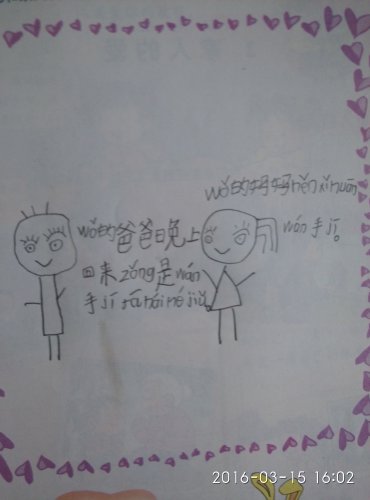 wǒ的爸爸晚上
回来zǒng是wán
手jī
wǒ的妈妈hěn xǐ huān
wán手jī。
2016-03-15 16:02